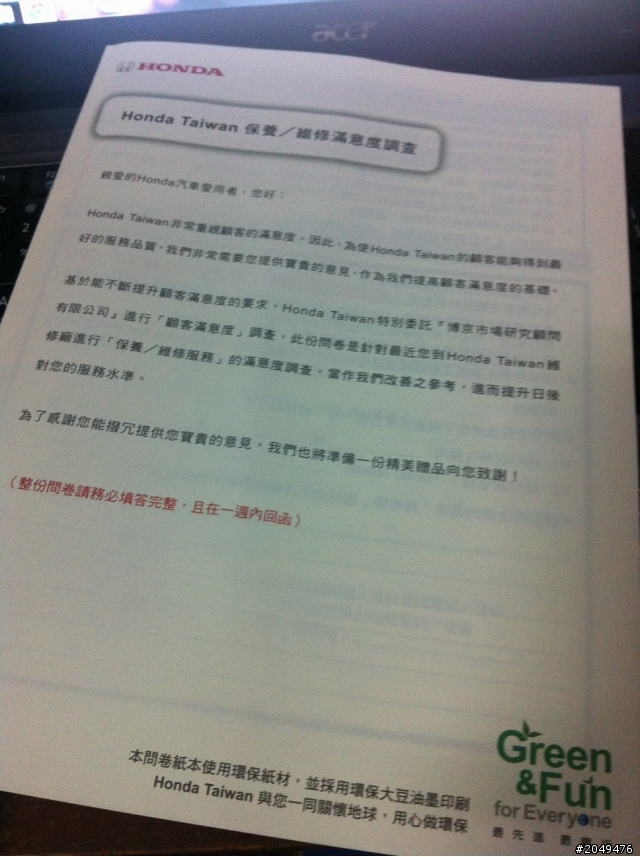 acer
HONDA
Honda Taiwan 保養／維修滿意度調查
親愛的Honda汽車愛用者，您好：
Honda Taiwan非常重視顧客的滿意度。因此，為使Honda Taiwan的顧客能夠得到最
好的服務品質，我們非常需要您提供寶貴的意見，作為我們提高顧客滿意度的基礎。
基於能不斷提升顧客滿意度的要求，Honda Taiwan特別委託『博京市場研究顧問
有限公司』進行「顧客滿意度」調查，此份問卷是針對最近您到Honda Taiwan維
修廠進行「保養／維修服務」的滿意度調查，當作我們改善之參考，進而提升日後
對您的服務水準。
為了感謝您能撥冗提供您寶貴的意見，我們也將準備一份精美禮品向您致謝！
（整份問卷請務必填答完整，且在一週內回函）
本問卷紙本使用環保紙材，並採用環保大豆油墨印刷
Honda Taiwan 與您一同關懷地球，用心做環保
Green
&Fun
for Everyone
最先進 最
#2049476